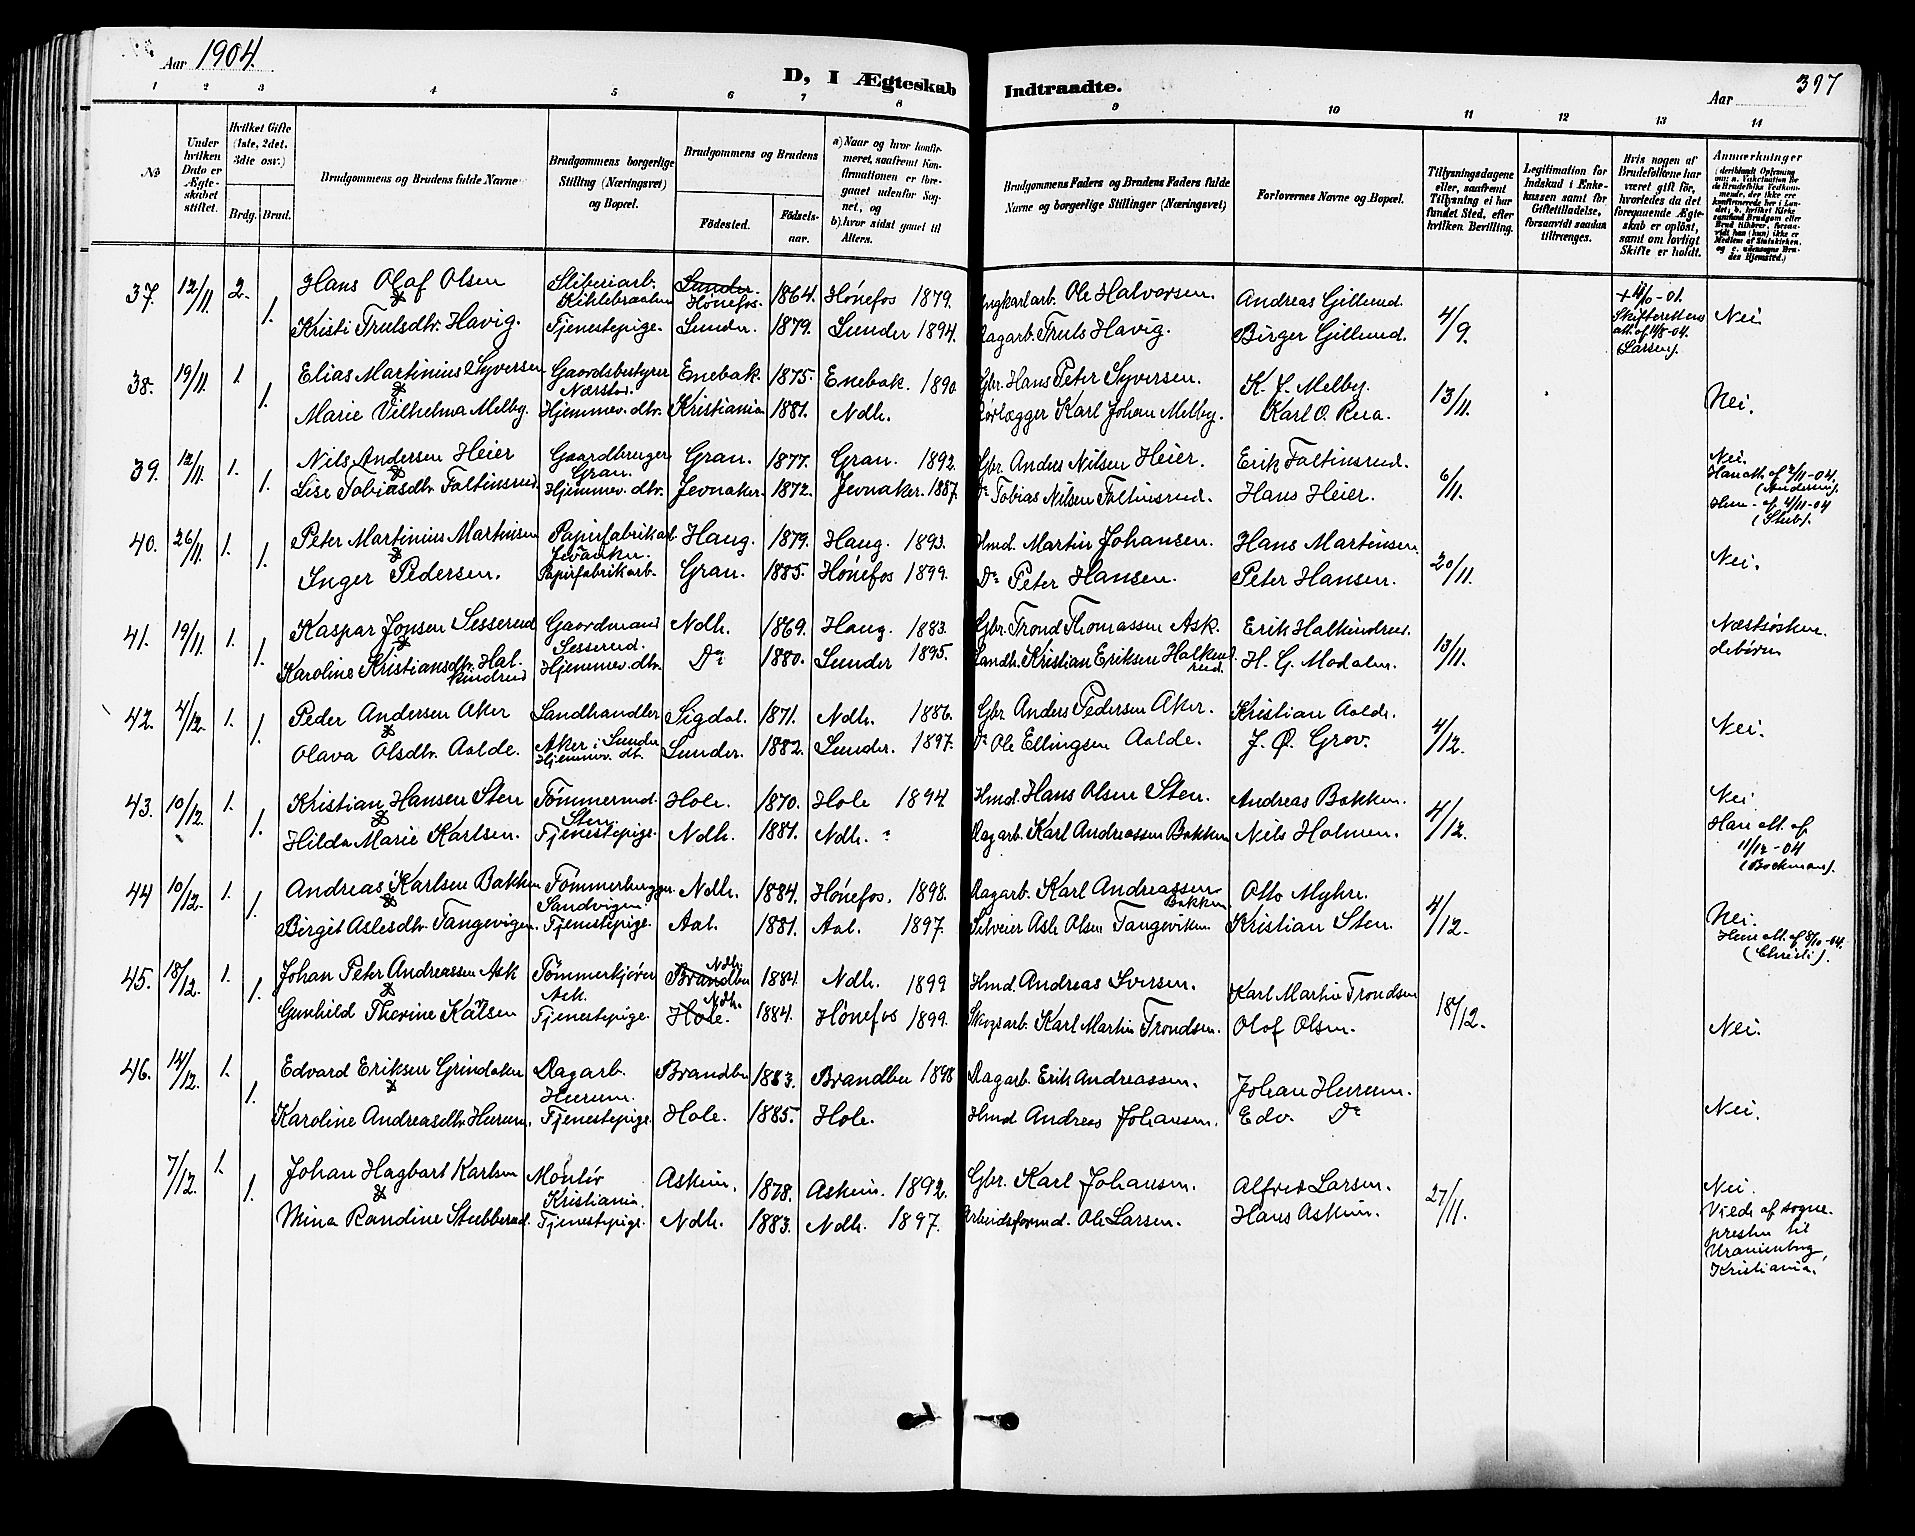 Aar 1904.
D, I Ægteskab Indtraadte.
Aar 397
1 2 3 4 5 6 7 8 9 10 11 12 13 14
No
Under hvilken Dato er Ægteskabet stiftet.
Hvilket Gifte (1ste, 2det, 3die osv.)
Brdg. Brud.
Brudgommens og Brudens fulde Navne
Brudgommens borgerlige Stilling (Næringsvei) og Bopæl.
Brudgommens og Brudens
Fødested. Fødselsaar.
a) Naar og hvor konfirmeret, saafremt Konfirmationen er foregaaet udenfor Sognet, og b) hvor sidst gaaet til Alters.
Brudgommens Faders og Brudens Faders fulde Navne og borgerlige Stillinger (Næringsvei)
Forlovernes Navne og Bopæl.
Tillysningsdagene eller, saafremt Tillysning ei har fundet Sted, efter hvilken Bevilling.
Legitimation for Indskud i Enkekassen samt for Giftetilladelse, forsaavidt saadan tiltrænges.
Hvis nogen af Brudefolkene har været gift før, hvorledes da det foregaaende Ægteskab er opløst, samt om lovligt Skifte er holdt.
Anmærkninger
37. 12/11 2. Hans Olaf Olsen Sliberiarb. Kihlebraaten Sunder. Hønefos. 1864. Hønefos 1879. Ole Halvorsen. Andreas Gillerud 4/9
1. Kristi Trulsdtr. Havig. Tjenestepige. Lunder. 1879. Lunder 1894. Dagarb. Truls Havig. Birger Gillerud. Nei
Skifterettens att. af 14/8-04. (Larsen).
38. 19/11 1. Elias Martinius Syversen Gaardsbestyrer Nærstad Enebak. 1875. Enebak. 1890 Gbr. Hans Peter Syversen. K. J. Melby. 13/11
1. Marie Vilhelma Melby. Hjemmev. dtr. Kristiania 1881. Ndh. Rørlægger Karl Johan Melby. Karl O. Rua. Nei.
39. 12/11 1. Nils Andersen Heier Gaardbruger Gran. Gran. 1877. Gran. 1892. Gbr. Anders Nilsen Heier. Erik Faltinsrud. 6/11 Nei.
1. Lise Tobiasdtr. Faltinsrud Hjemmev. dtr. Jevnaker. 1872. Jevnaker. 1887. Do Tobias Nilsen Faltinsrud. Hans Heier.
Han att. af 2/11-04. (Andersen).
Hun - af 4/11-04 (Stub).
40. 26/11 1. Peter Martinius Martinsen Papirfabrikarb Jevnaker. Haug. 1879. Haug. 1893. Hmd. Martin Johansen. Hans Martinsen. 20/11
1. Inger Pedersen. Papirfabrikarb. Gran. 1885. Hønefos 1899. Do Peter Hansen. Peter Hansen. Nei.
41. 19/11 1. Kaspar Jonsen Sesserud Gaardmand Sesserud. Ndh. 1869. Haug. 1883. Gbr. Trond Thomassen Ask. Erik Halkindrud. 13/11 Næstsøskendebørn
1. Karoline Kristiansdtr. Halkindrud Hjemmev. dtr. Do 1880. Lunder 1895. Landh. Kristian Eriksen Halkindrud. H. G. Modalen.
42. 4/12. 1. Peder Andersen Aker Landhandler Aker i Lunder Sigdal. 1871. Ndh. 1886. Gbr Anders Pedersen Aker. Kristian Aalde. 4/12.
1. Olava Olsdtr. Aalde. Hjemmev. dt. Lunder. 1882. Lunder. 1897. Do Ole Ellingsen Aalde. J. Ø. Grov. Nei.
43. 10/12. 1. Kristian Hansen Sten Tømmermd. Sten. Hole. 1870. Hole 1894 Hmd. Hans Olsen Sten. Andreas Bakken. 4/12. Nei
1. Hilda Marie Karlsen. Tjenestepige. Ndh. 1881. Ndh. Dagarb. Karl Andreassen Bakken Nils Holmen.
Han att. af 11/12-04 (Bockman).
44 10/12. 1. Andreas Karlsen Bakken Sandvigen Ndh. 1884. Hønefos. 1898. Dagarb. Karl Andreassen Bakken Otto Myhre. 4/12.
1. Birgit Aslesdtr. Tangevigen. Tjenestepige. Aal. 1881. Aal. 1897. Selveier Asle Olsen Tangeviken Kristian Sten. Nei.
Hun att. af 8/10-04. (Christi).
45. 18/12. 1. Johan Peter Andreassen Ask Tømmerkjører Ask. Brandbu Ndh. 1884. Ndh. 1899 Hmd. Andreas Iversen. Karl Martin Trondsen 18/12.
1. Gunhild Thorine Karlsen Tjenestepige. Hole. Ndh. 1884. Hønefos 1899. Skogsarb. Karl Martin Trondsen. Olof Olsen. Nei.
46. 14/12. 1. Edvard Eriksen Grindaker Dagarb. Hurum. Brandbu 1883. Brandbu 1898 Dagarb. Erik Andreassen. Johan Hurum.
1. Karoline Andreasdtr. Hurum. Tjenestepige. Hole. 1885. Hole. Hmd. Andreas Johansen. Edv. Do Nei.
7/12. 1. Johan Hagbart Karlsen Montør Kristiania. Askim. 1878. Askim. 1892. Gbr. Karl Johansen. Alfred Larsen. 27/11. Nei.
1. Mina Randine Stubberud. Tjenestepige. Ndh. 1883. Ndh. 1897. Arbeidsformd. Ole Larsen. Hans Askim.
Viede af sognepresten til Uranienborg, Kristiania.